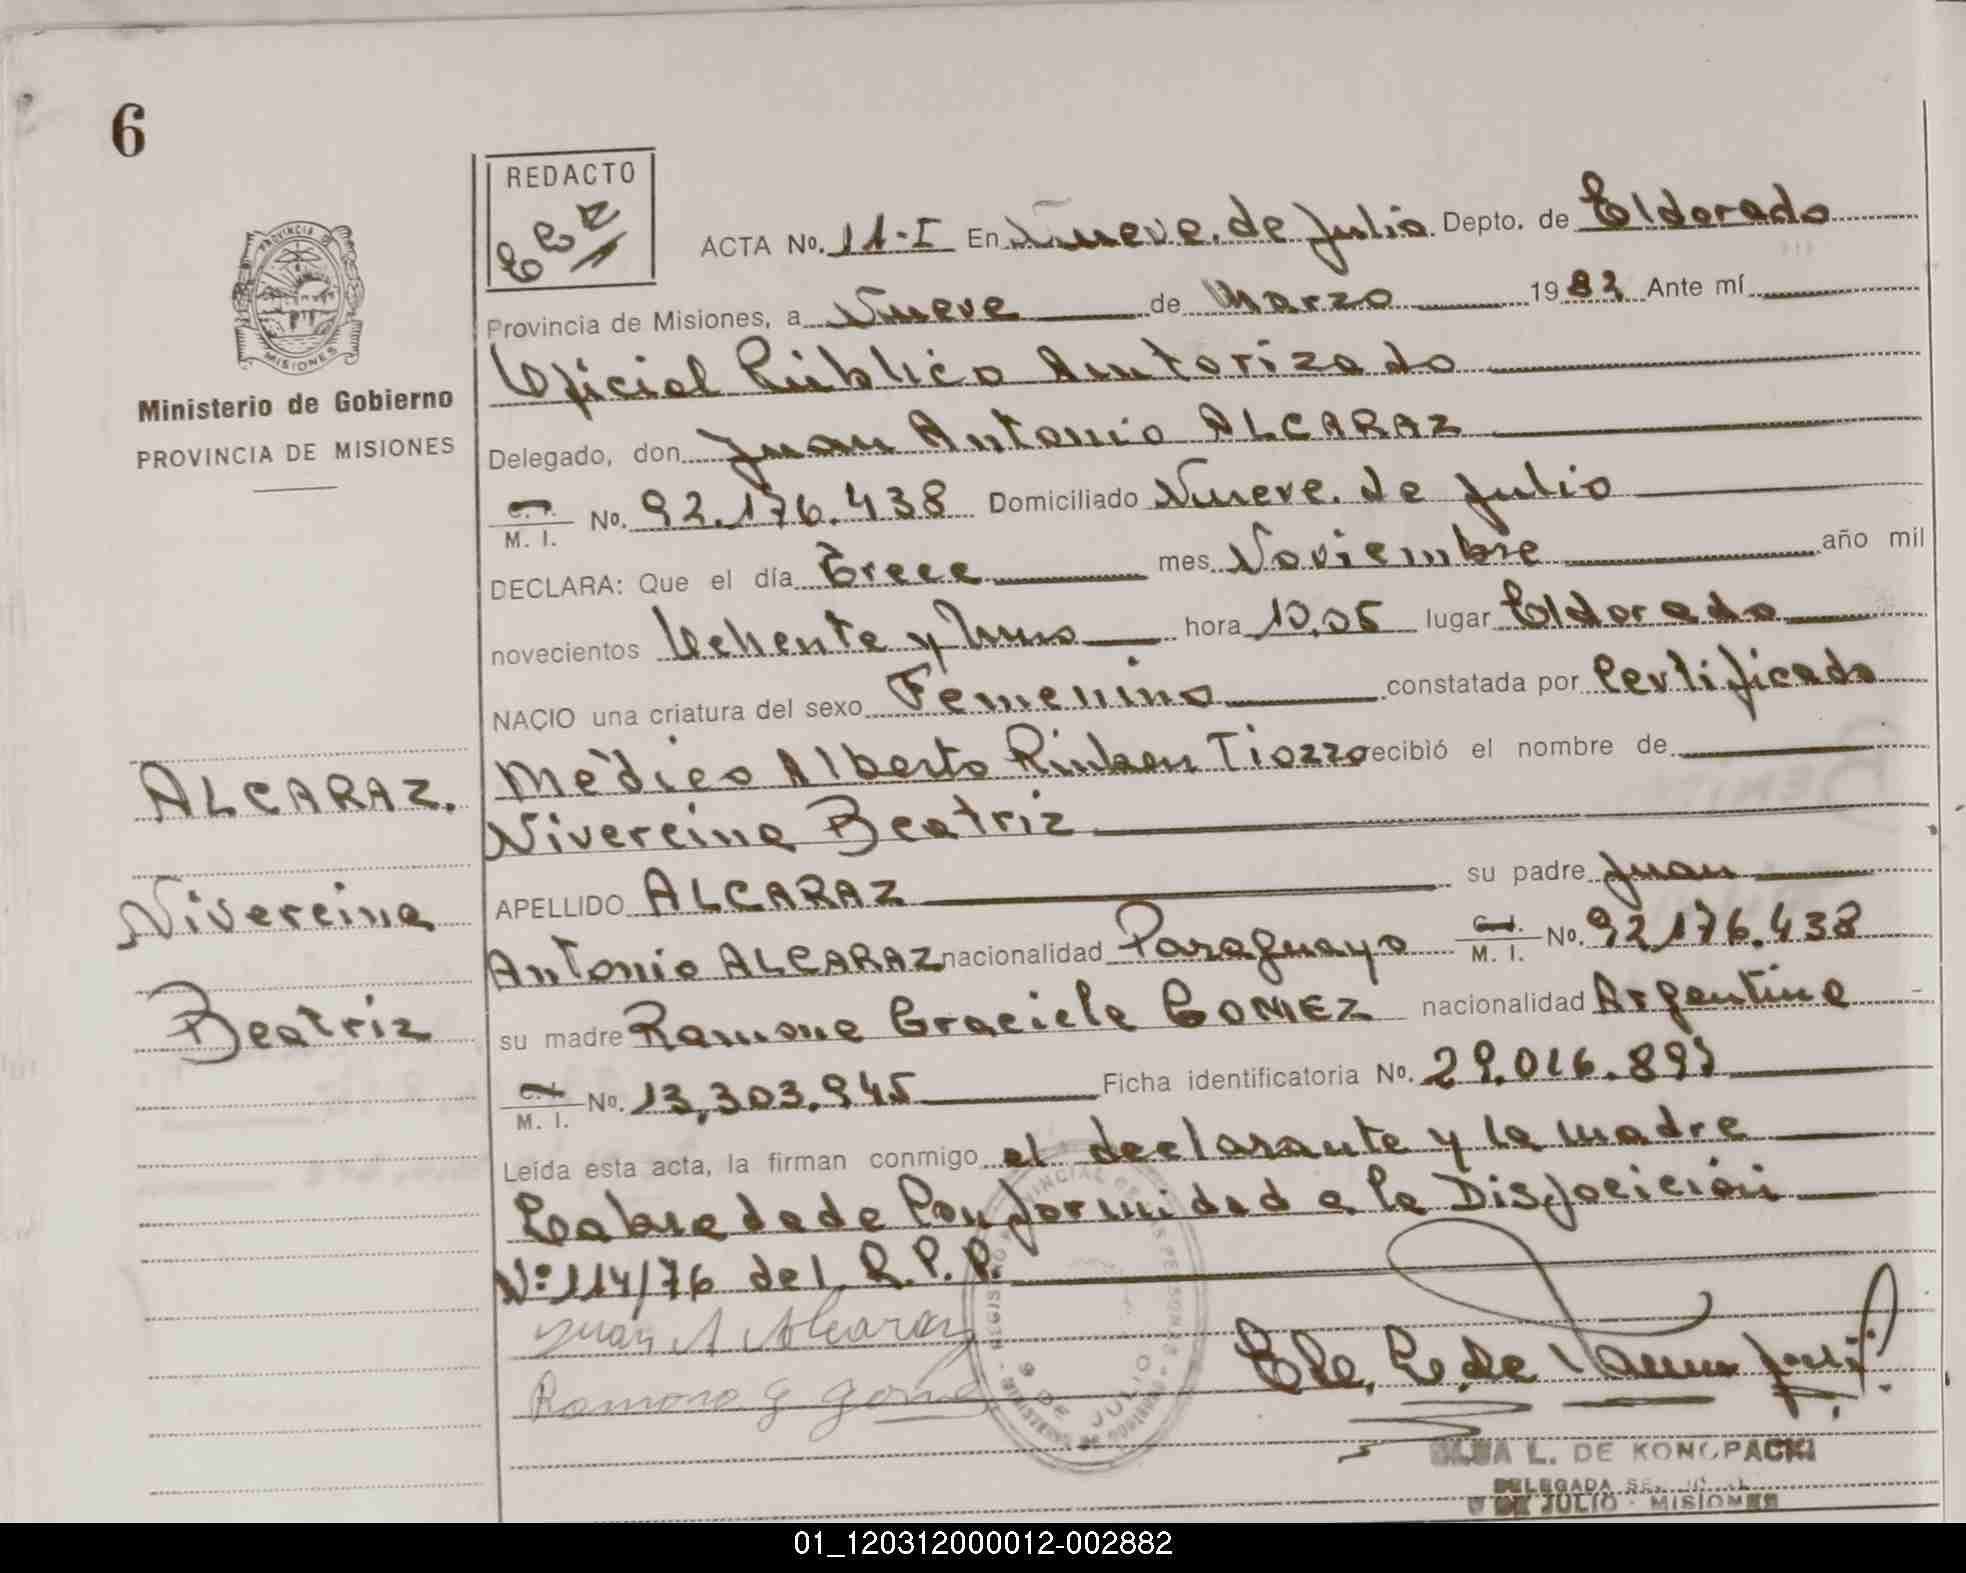 6
REDACTO
PROVINCIA
MISIONES
Ministerio de Gobierno
PROVINCIA DE MISIONES
ACTA No. 11-I En Nueve de Julio Depto. de Eldorado
Provincia de Misiones, a Nueve de Marzo 1982 Ante mí
Oficial Público Autorizado
Delegado, don Juan Antonio ALCARAZ
M. I. No. 92.176.438 Domiciliado Nueve de Julio
DECLARA: Que el día Trece mes Noviembre año mil
novecientos Ochente y Uno hora 10,05 lugar Eldorado
NACIO una criatura del sexo Femenino constatada por Certificado
Médico Alberto Ruben Tiozzo recibió el nombre de
Nivereina Beatriz
APELLIDO ALCARAZ su padre Juan
Antonio ALCARAZ nacionalidad Paraguayo M. I. No. 92176.438
su madre Ramona Graciela GOMEZ nacionalidad Argentina
M. I. No. 13,303.945 Ficha identificatoria No. 29.016.897
Leída esta acta, la firman conmigo el declarante y la madre
Labrada de Conformidad a la Disposición
Nº 114/76 del R.P.P.
Juan A Alcaraz
Ramona G Gomez
9 DE JULIO
L. DE KONOPACKI
DELEGADA
9 DE JULIO - MISIONES
ALCARAZ.
Nivereina
Beatriz
01_120312000012-002882